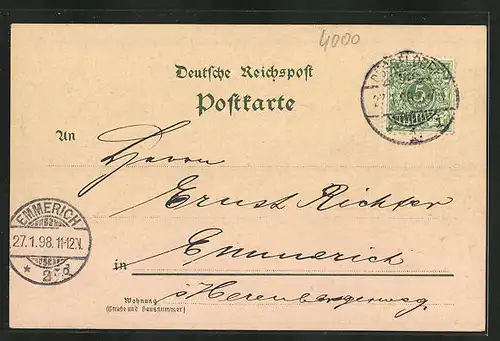 4000
Deutsche Reichspost
Postkarte
5
An
Herrn
Ernst Richter
EMMERICH
27.1.98. 11-12.V.
Emmerich
in
Wohnung
(Straße und Hausnummer)